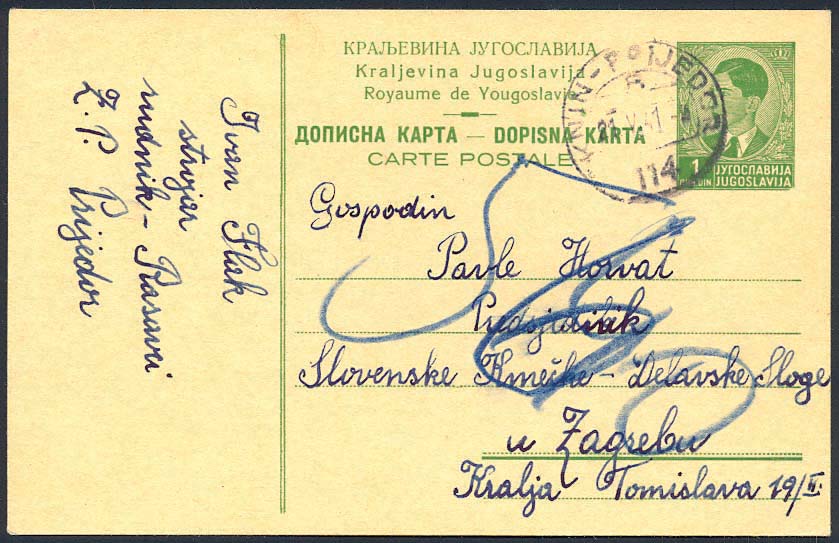 КРАЉЕВИНА ЈУГОСЛАВИЈА
Kraljevina Jugoslavija
Royaume de Yougoslavie
ДОПИСНА КАРТА — DOPISNA KARTA
CARTE POSTALE
KNIN-PRIJEDOR
114
1
DIN
ЈУГОСЛАВИЈА
JUGOSLAVIJA
Ivan Flak
strojar
rudnik-Rasavci
Ž.P. Prijedor
Gospodin
Pavle Horvat
Predsjednik
Slovenske Kmečke-Delavske Sloge
u Zagrebu
Kralja Tomislava 19/II.